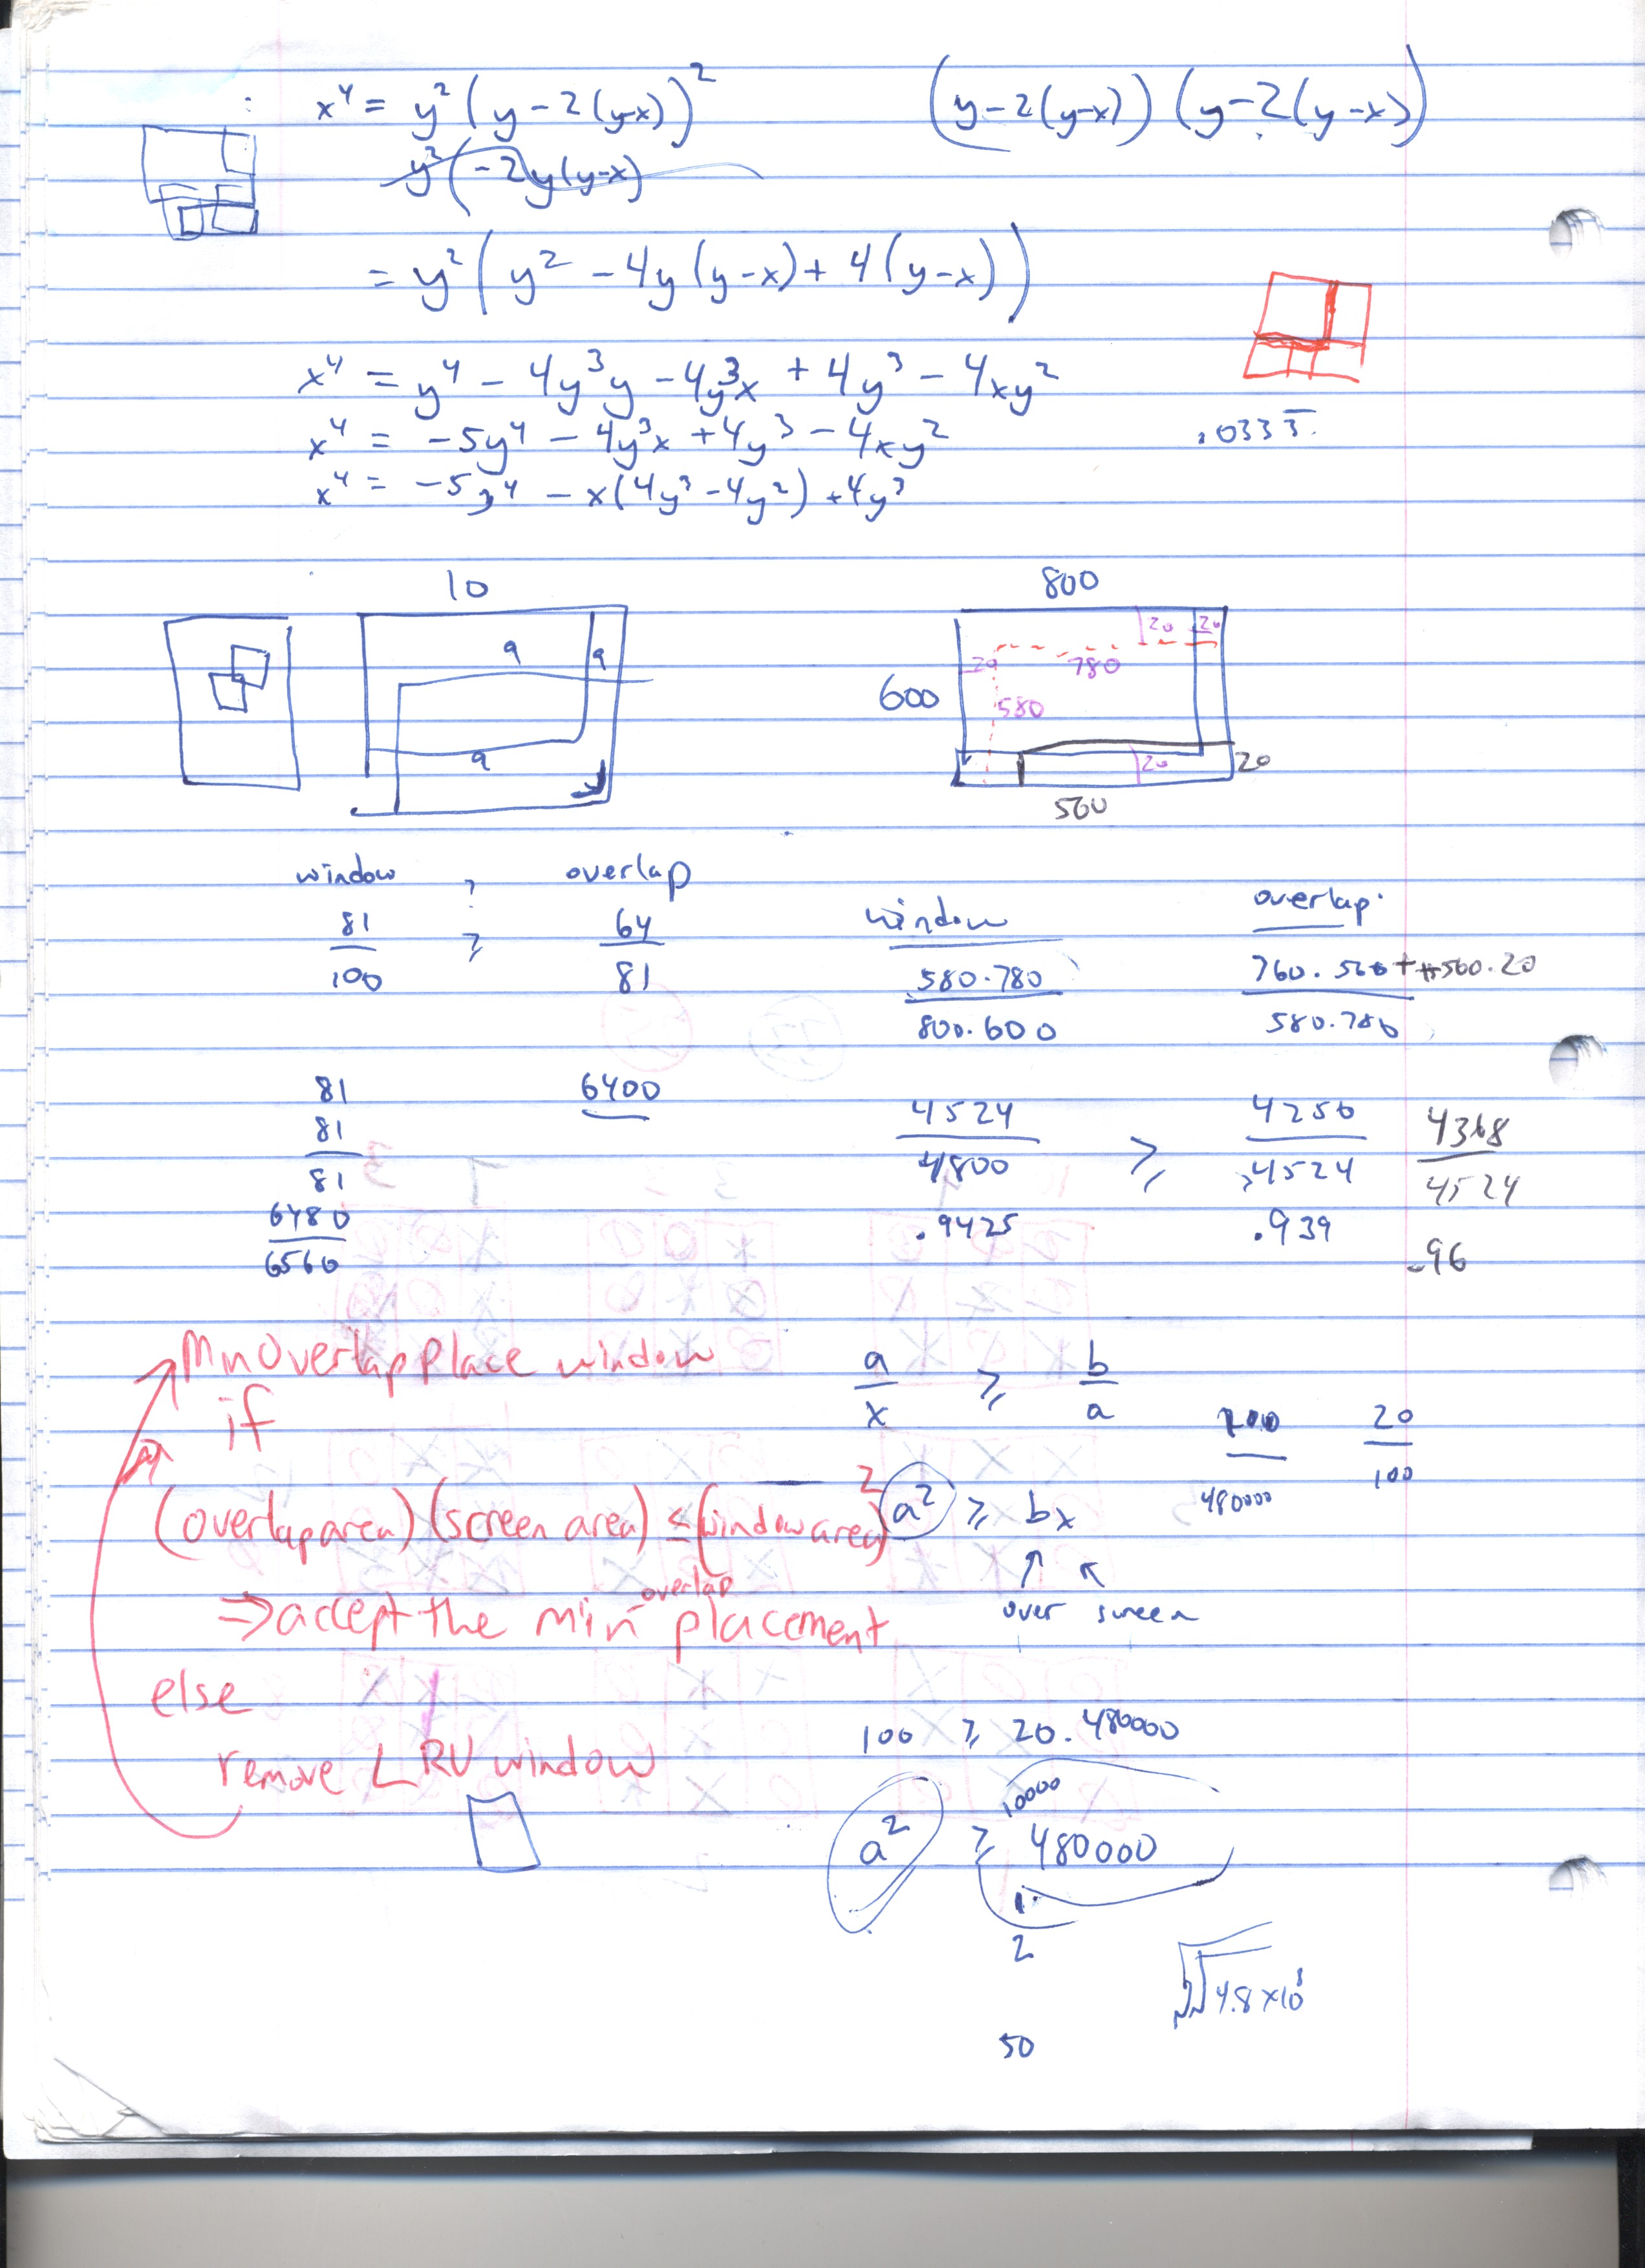 x⁴ = y² (y - 2(y-x))²
(y-2(y-x)) (y-2(y-x))
y²(-2y(y-x)
= y² (y² - 4y (y-x) + 4 (y-x))
x⁴ = y⁴ - 4y³y - 4y³x + 4y³ - 4xy²
x⁴ = -5y⁴ - 4y³x + 4y³ - 4xy²
.0333
x⁴ = -5y⁴ - x(4y³ - 4y²) + 4y³
10
9
9
9
800
20
20
20
780
600
580
20
20
560
window ? overlap
81/100 ≥ 64/81
window
580.780
800.600
overlap
760.560 + 560.20
580.780
81
81
81
6480
6560
6400
4524/4800 ≥ 4256/4524
4368/4524
.9425
.939
.96
MinOverlapPlace window
if
(overlap area) (screen area) ≤ (window area)²
⇒ accept the min overlap placement
else
remove LRU window
a/x ≥ b/a
100/480000
20/100
a² ≥ bx
over screen
100 ≥ 20 . 480000
10000
a² ≥ 480000
1
2
√4.8 x 10⁸
50